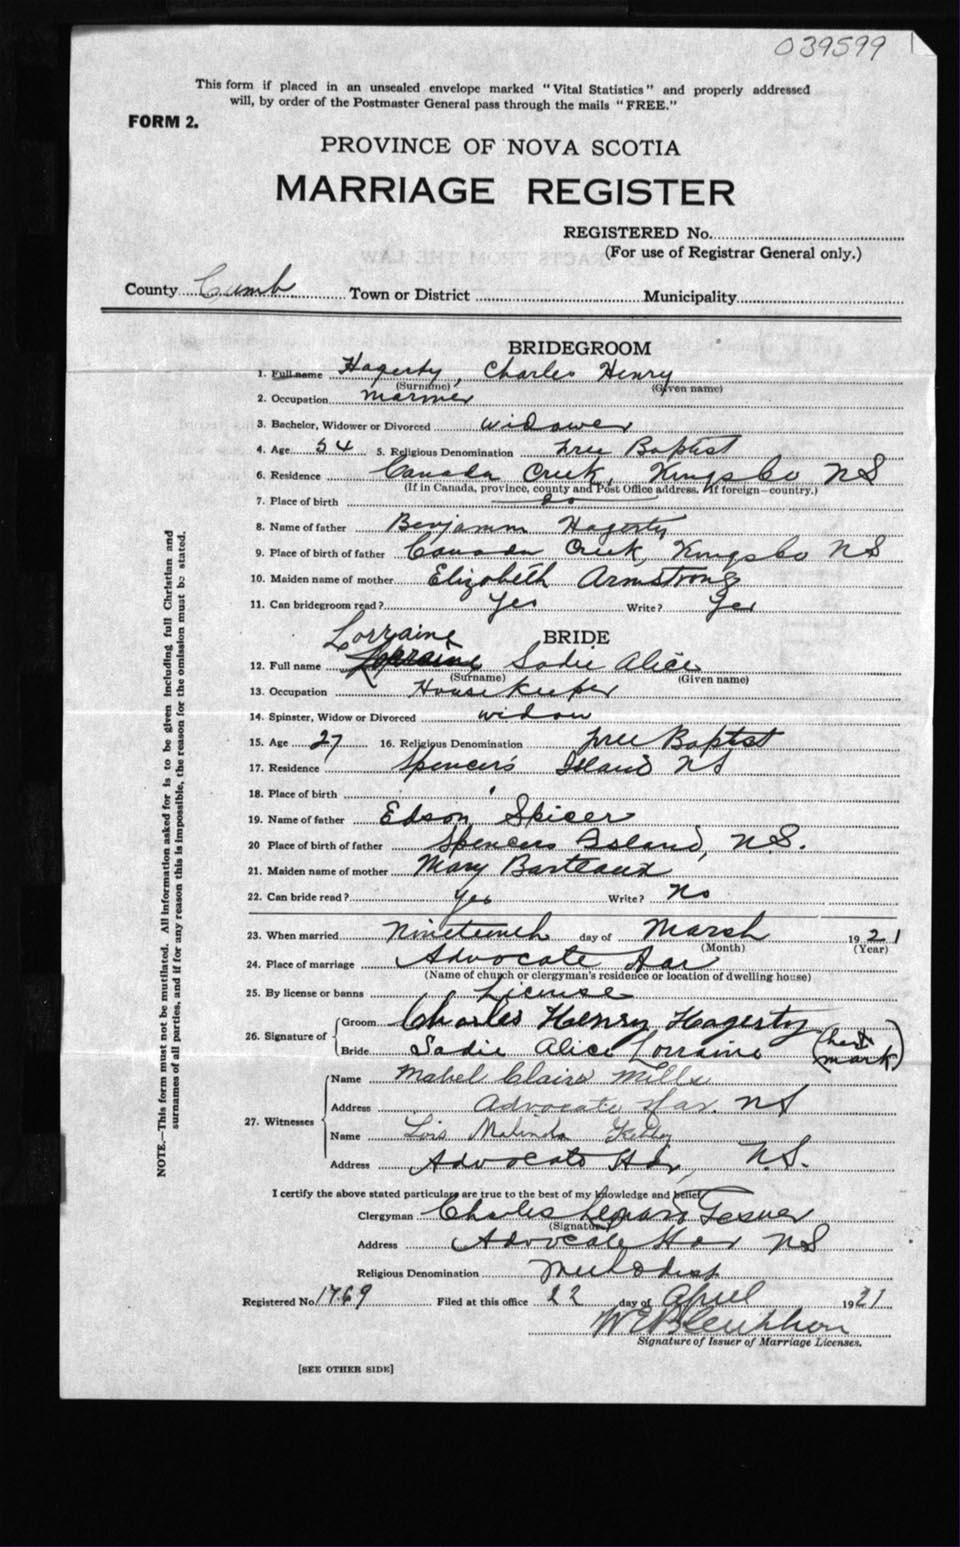 039599
This form if placed in an unsealed envelope marked "Vital Statistics" and properly addressed
will, by order of the Postmaster General pass through the mails "FREE."
FORM 2.
PROVINCE OF NOVA SCOTIA
MARRIAGE REGISTER
REGISTERED No.
(For use of Registrar General only.)
County Cumb Town or District Municipality
BRIDEGROOM
1. Full name Hagerty, Charles Henry
(Surname) (Given name)
2. Occupation mariner
3. Bachelor, Widower or Divorced widower
4. Age 54 5. Religious Denomination Free Baptist
6. Residence Canada Creek, Kings Co NS
(If in Canada, province, county and Post Office address. If foreign—country.)
7. Place of birth do
8. Name of father Benjamin Hagerty
9. Place of birth of father Canada Creek, Kings Co NS
10. Maiden name of mother Elizabeth Armstrong
11. Can bridegroom read? Yes Write? Yes
Lorraine BRIDE
12. Full name Lorraine Sadie Alice
(Surname) (Given name)
13. Occupation Housekeeper
14. Spinster, Widow or Divorced widow
15. Age 27 16. Religious Denomination Free Baptist
17. Residence Spencer's Island NS
18. Place of birth
19. Name of father Edson Spicer
20 Place of birth of father Spencers Island, N.S.
21. Maiden name of mother Mary Barteaux
22. Can bride read? Yes Write? No
23. When married Nineteenth day of Marsh 1921
(Month) (Year)
24. Place of marriage Advocate Har
(Name of church or clergyman's residence or location of dwelling house)
25. By license or banns License
26. Signature of Groom Charles Henry Hagerty
Bride Sadie Alice Lorraine (her X mark)
27. Witnesses Name Mabel Claire Mills
Address Advocate Har. NS
Name Lois Malinda
Address Advocate Har, N.S.
I certify the above stated particulars are true to the best of my knowledge and belief
Clergyman Charles
(Signature)
Address Advocate Har NS
Religious Denomination Methodist
Registered No. 1769 Filed at this office 22 day of April 1921
Signature of Issuer of Marriage Licenses.
[SEE OTHER SIDE]
NOTE.—This form must not be mutilated. All information asked for is to be given including full Christian and
surnames of all parties, and if for any reason this is impossible, the reason for the omission must be stated.